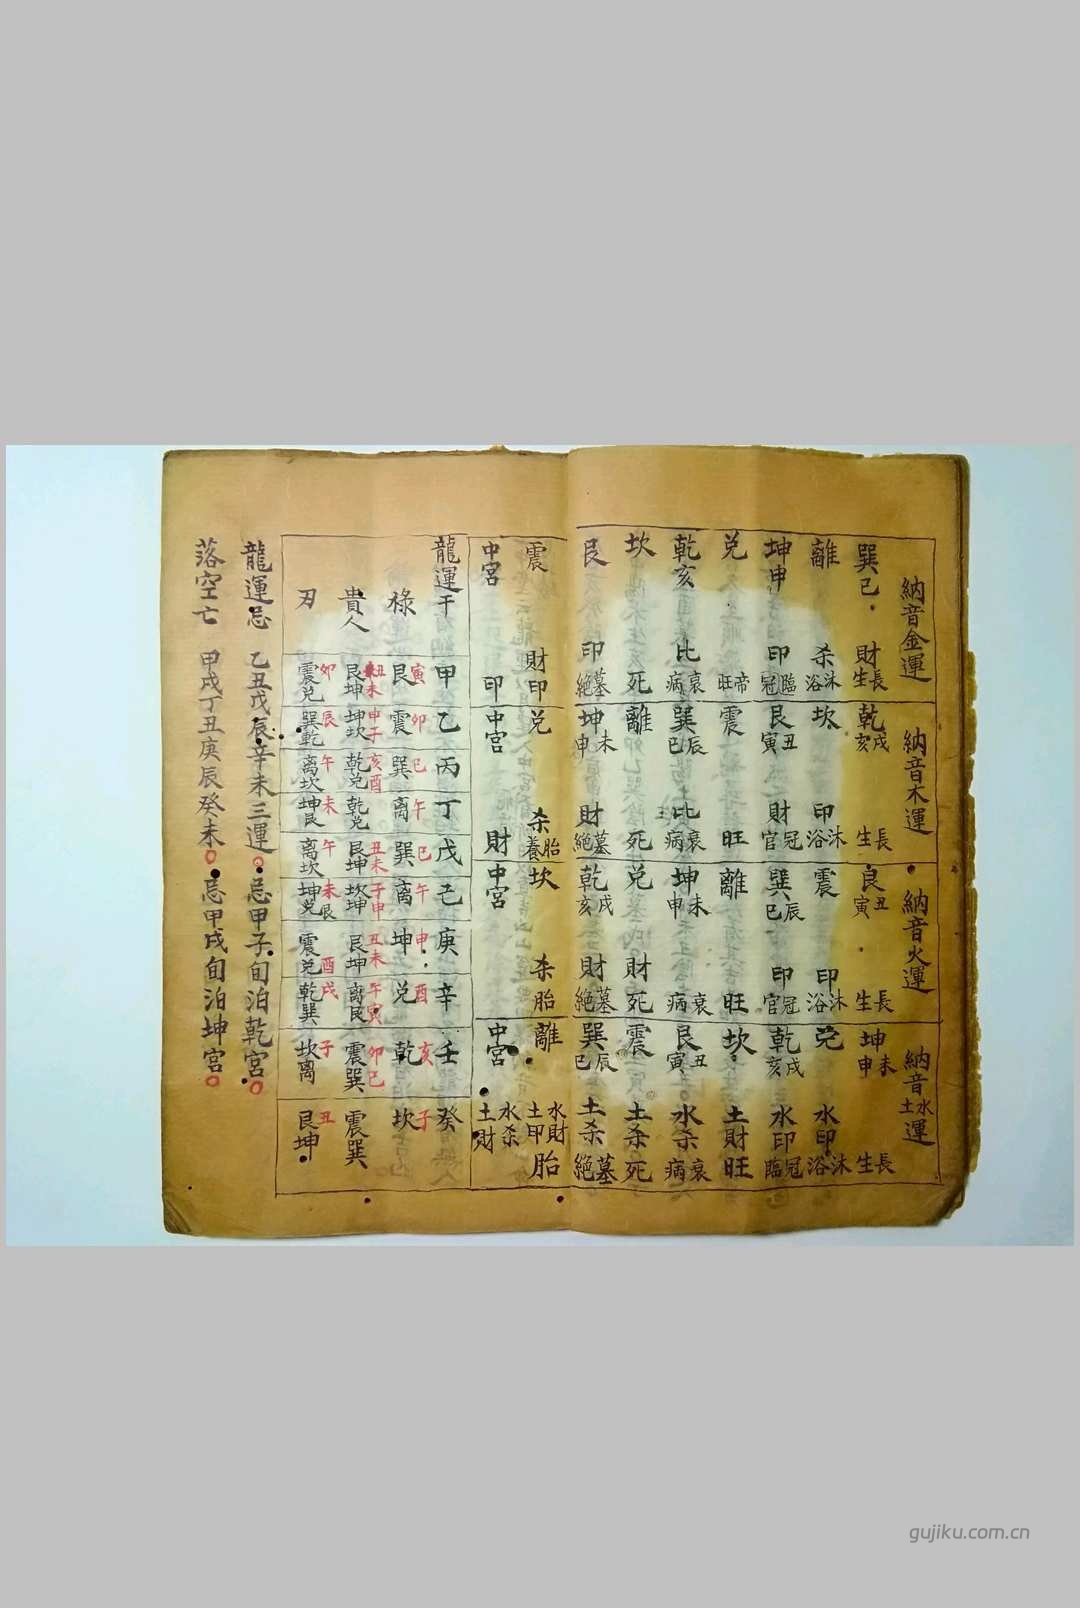 納音金運　納音木運　納音火運　納音水土運
巽巳　財　長生　乾戌亥　長生　艮丑寅　長生　坤未申　長生
離　杀　沐浴　坎　印　沐浴　震　印　沐浴　兌　水印　沐浴
坤申　印　臨冠　艮丑寅　財　冠官　巽辰巳　印　冠官　乾戌亥　水印　冠臨
兌　帝旺　震　旺　離　旺　坎　土財　旺
乾亥　比　衰病　巽辰巳　比　衰病　坤未申　衰病　艮丑寅　水杀　衰病
坎　死　離　死　兌　財　死　震　土杀　死
艮　印　墓絕　坤未申　財　墓絕　乾戌亥　財　墓絕　巽辰巳　土杀　墓絕
震　財印　兌　杀　胎養　坎　杀　胎　離　水財　土甲　胎
中宮　印　中宮　財　中宮　中宮　水杀　土財
龍運干　甲　乙　丙　丁　戊　己　庚　辛　壬　癸
祿　寅艮　卯震　巳巽　午离　巳巽　午离　申坤　酉兌　亥乾　子坎
貴人　丑未艮坤　申子坤坎　亥酉乾兌　乾兌　丑未艮坤　子申坎坤　丑未艮坤　午寅离艮　卯巳震巽　震巽
刃　卯震兌　辰巽乾　午离坎　未坤艮　午离坎　未辰坤兌　酉震兌　戌乾巽　子坎離　丑艮坤
龍運忌　乙丑戊辰辛未三運○忌甲子旬泊乾宮○
落空亡　甲戌丁丑庚辰癸未○忌甲戌旬泊坤宮○
gujiku.com.cn